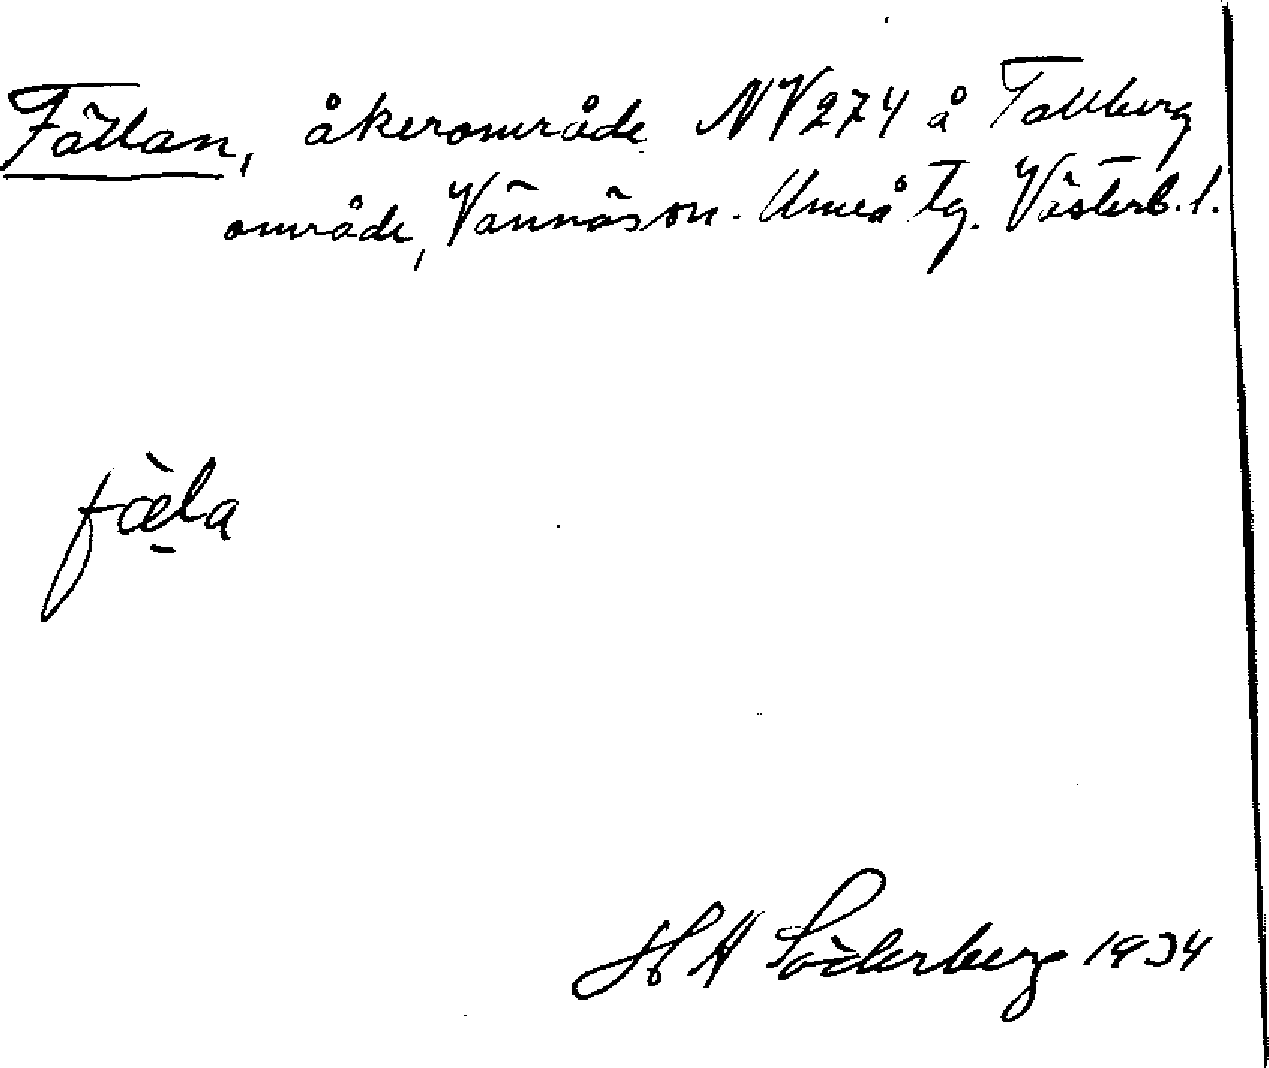 Fällan, åkerområde NV 274 å Tallberg
område, Vännäs sn. Umeå tg. Västerb. l.
fæ̀la
H A Söderberg 1934